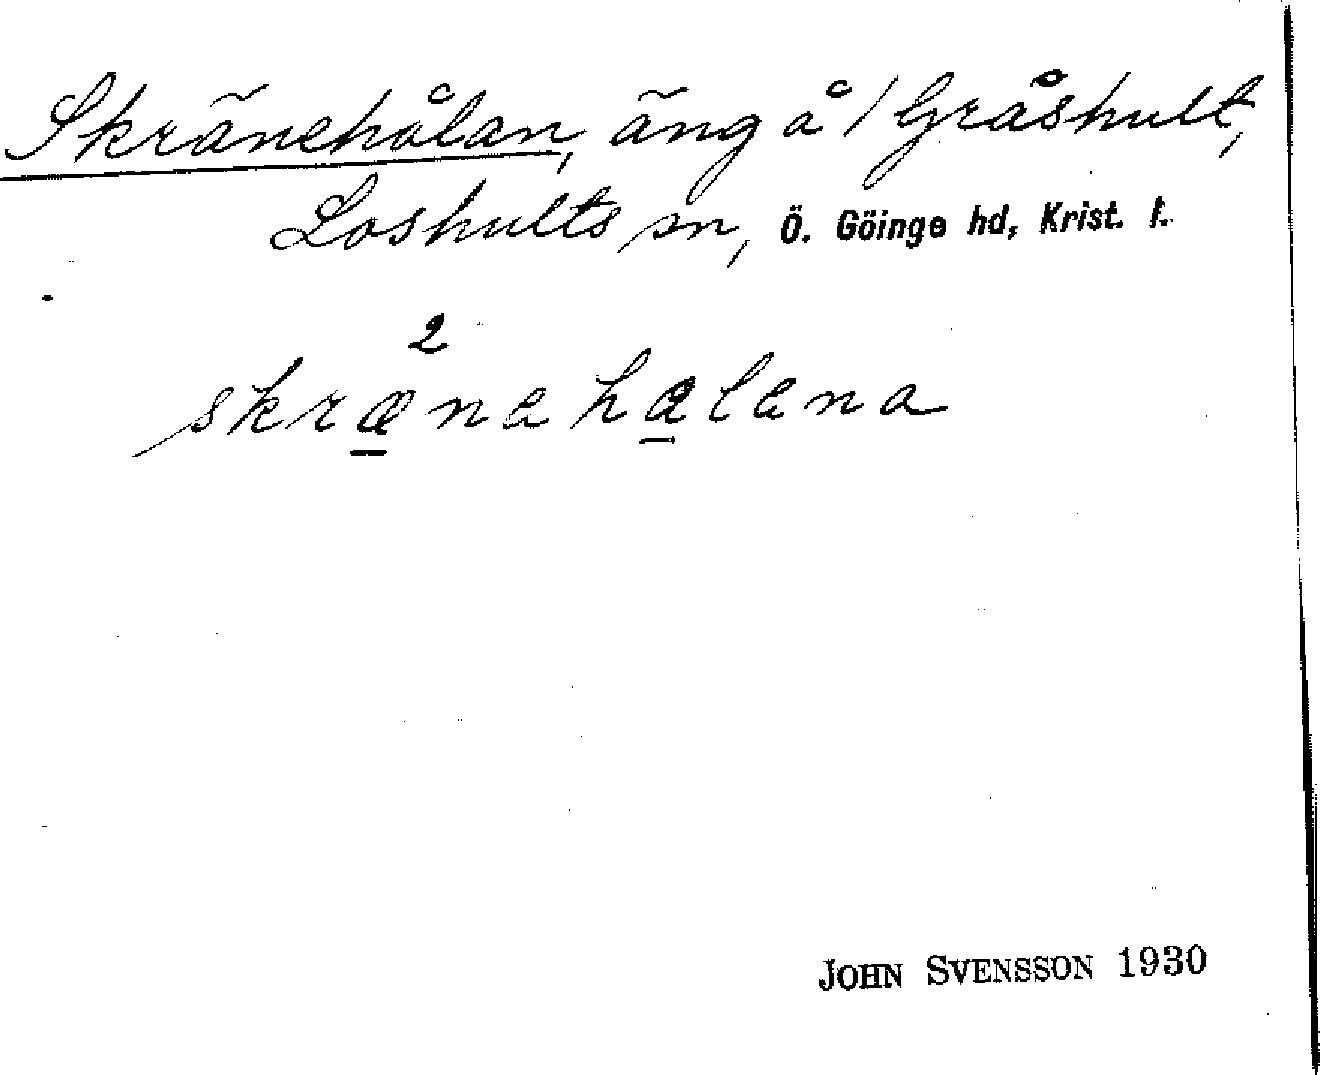 Skränehålan, äng å 1 Gråshult,
Loshults sn, Ö. Göinge hd, Krist. l.
2
skrænahalana
JOHN SVENSSON 1930